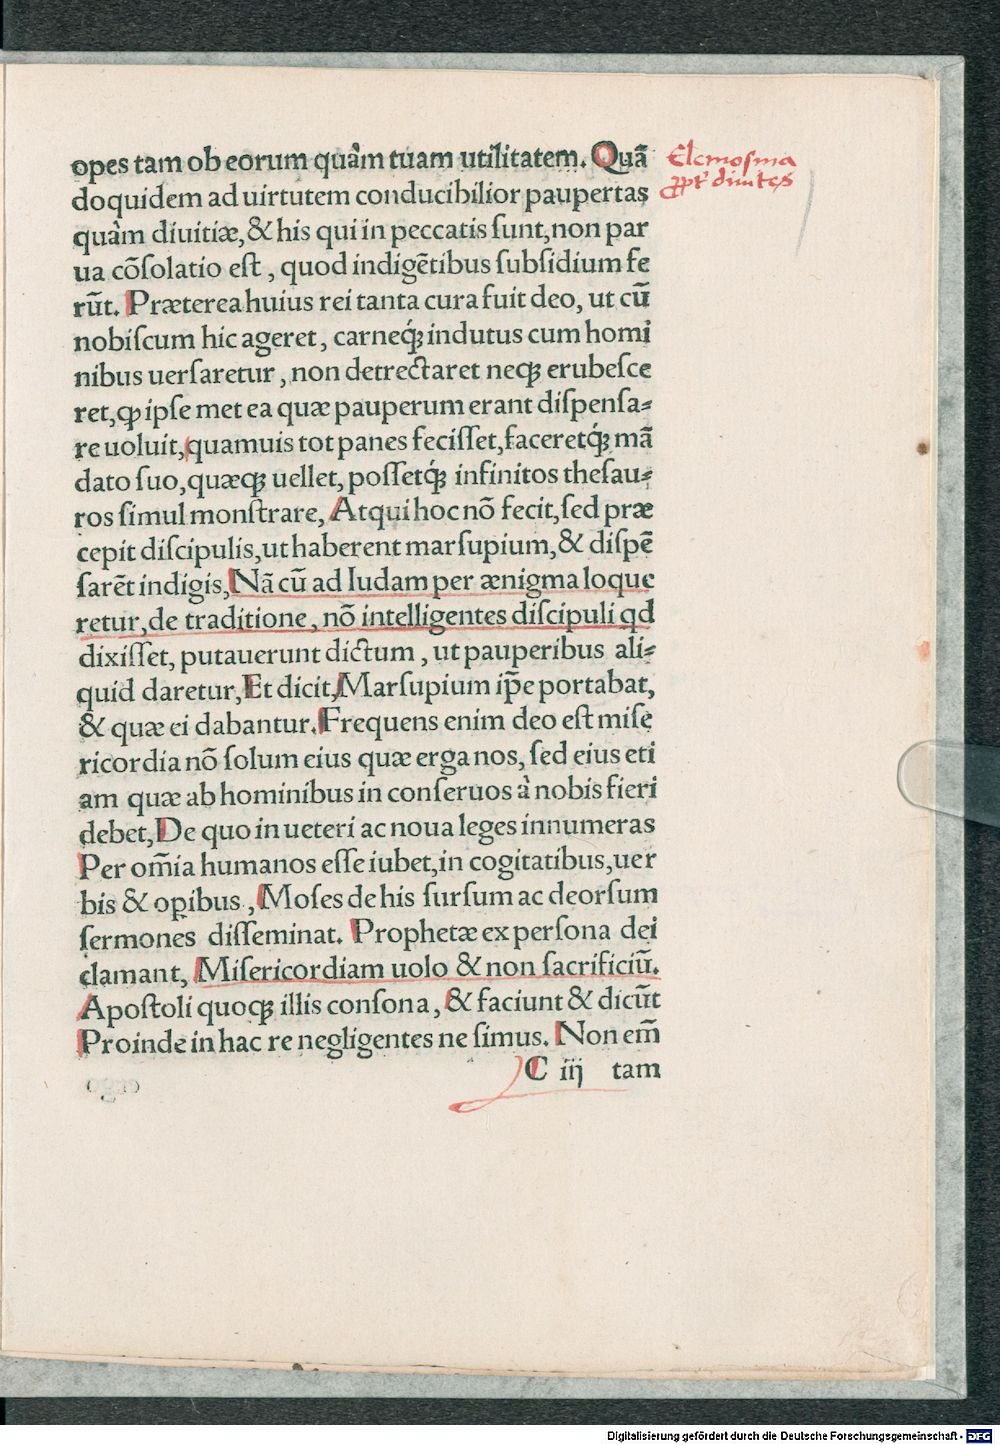 opes tam ob eorum quàm tuam utilitatem. Quã
doquidem ad uirtutem conducibilior paupertas
quàm diuitiæ, & his qui in peccatis ſunt, non par
ua cõſolatio eſt, quod indigẽtibus ſubſidium fe
rũt. Præterea huius rei tanta cura fuit deo, ut cũ
nobiſcum hic ageret, carneq́ꝫ indutus cum homi
nibus uerſaretur, non detrectaret neqꝫ erubeſce
ret, ꝙ ipſe met ea quæ pauperum erant diſpenſa⸗
re uoluit, quamuis tot panes feciſſet, faceretq́ꝫ mã
dato ſuo, quæqꝫ uellet, poſſetq́ꝫ infinitos theſau⸗
ros ſimul monſtrare, Atqui hoc nõ fecit, ſed præ
cepit diſcipulis, ut haberent marſupium, & diſpẽ
ſarẽt indigis, Nã cũ ad Iudam per ænigma loque
retur, de traditione, nõ intelligentes diſcipuli qd
dixiſſet, putauerunt dictum, ut pauperibus ali⸗
quid daretur, Et dicit, Marſupium ip̃e portabat,
& quæ ei dabantur. Frequens enim deo eſt miſe
ricordia nõ ſolum eius quæ erga nos, ſed eius eti
am quæ ab hominibus in conſeruos à nobis fieri
debet, De quo in ueteri ac noua leges innumeras
Per om̃ia humanos eſſe iubet, in cogitatibus, uer
bis & oꝑibus, Moſes de his ſurſum ac deorſum
ſermones diſſeminat. Prophetæ ex perſona dei
clamant, Miſericordiam uolo & non ſacrificiũ.
Apoſtoli quoqꝫ illis conſona, & faciunt & dicũt
Proinde in hac re negligentes ne ſimus. Non em̃
C iij tam
Elemosina
divites
Digitalisierung gefördert durch die Deutsche Forschungsgemeinschaft - DFG